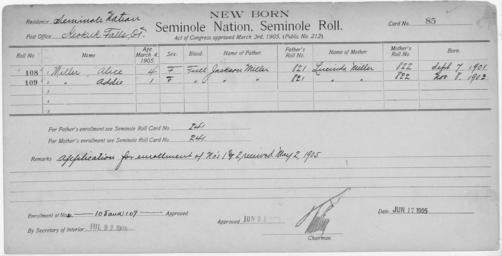 NEW BORN
Residence Seminole Nation
Seminole Nation, Seminole Roll.
Card No. 85
Post Office
Act of Congress approved March 3rd, 1905. (Public No. 212).
Roll No Name Age March 4 1905 Sex. Blood. Name of Father. Father's Roll No. Name of Mother Mother's Roll No. Born.
108 1 Miller, Alice 4 F Full Jackson Miller 821 Lucinda Miller 822 Sept 7, 1901
109 2 " Addie " F " " " 821 " " 822 Nov 8, 1902
3
4
5
For Father's enrollment see Seminole Roll Card No 241
For Mother's enrollment see Seminole Roll Card No. 241
Remarks Application for enrollment of Nos 1 & 2 received May 2, 1905
Enrollment of Nos 108 and 109 Approved
Approved
Date JUN 17 1905
By Secretary of Interior
Chairman